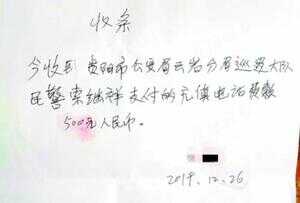 收条
今收到贵阳市公安局云岩分局巡逻大队
民警索继祥支付的充值电话预款
500元人民币。
2019.12.26